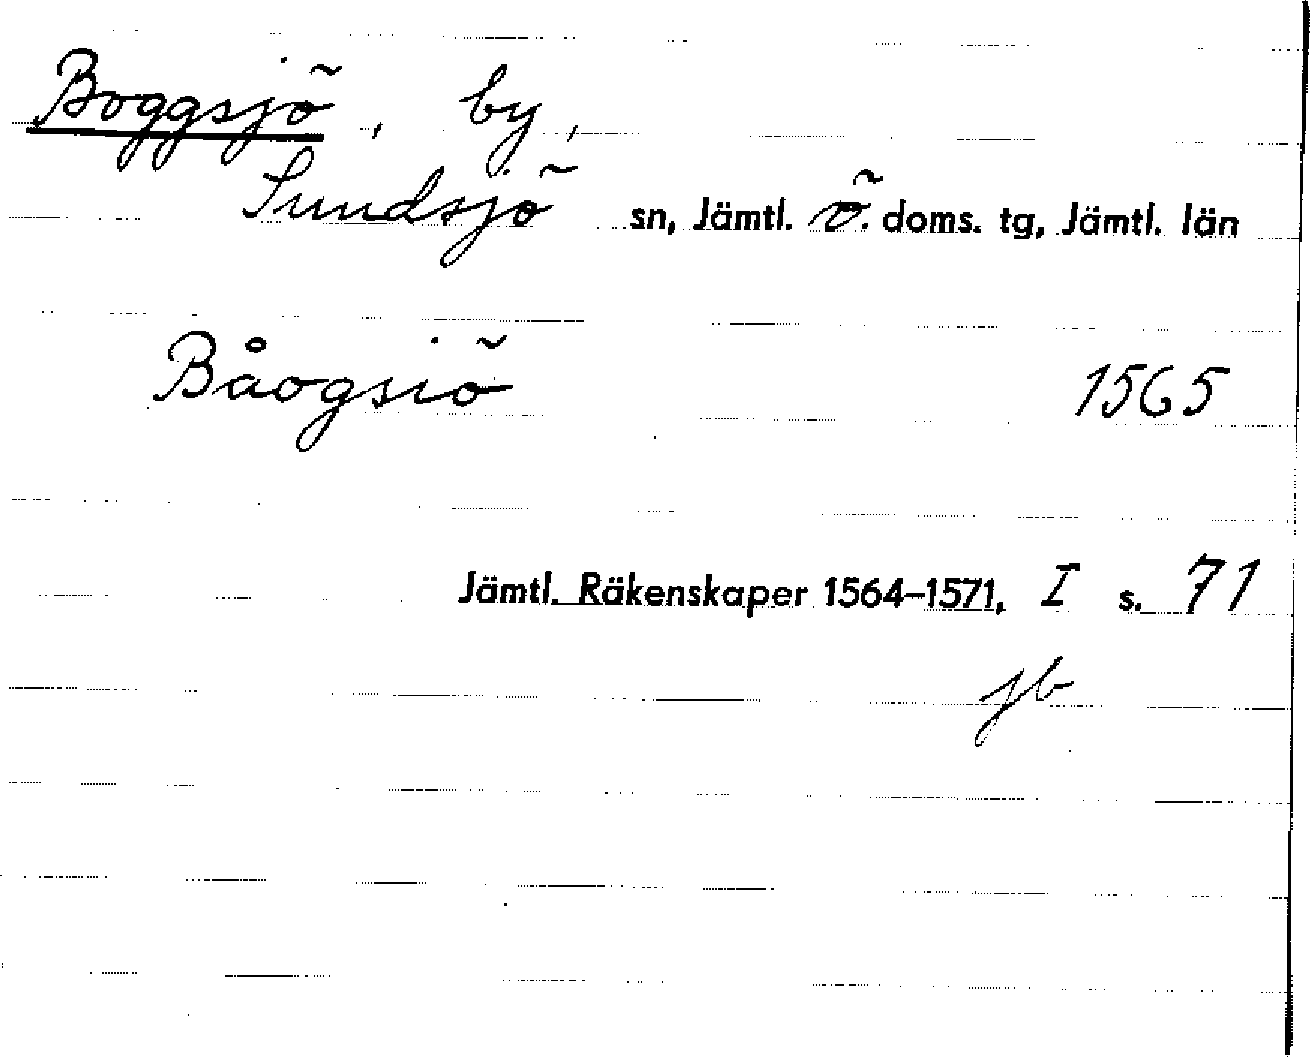 Boggsjö, by,
Sundsjö sn, Jämtl. ö. doms. tg, Jämtl. län
Båogsiö 1565
Jämtl. Räkenskaper 1564–1571, I s. 71
jb